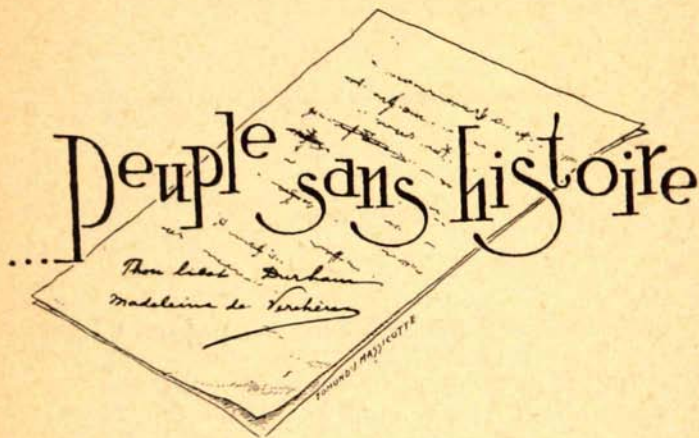 ...Peuple sans histoire
Thou liest Durham
Madeleine de Verchères
EDMOND-J MASSICOTTE